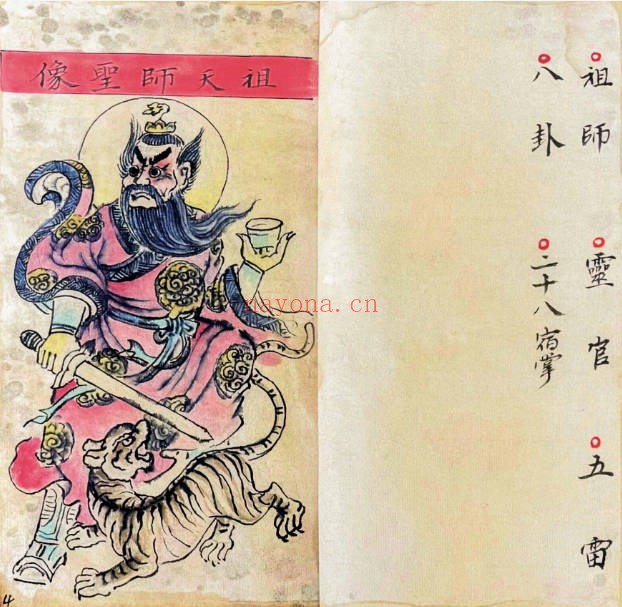 祖天師聖像
祖師 靈官 五雷
八卦 二十八宿掌
nayona.cn
4